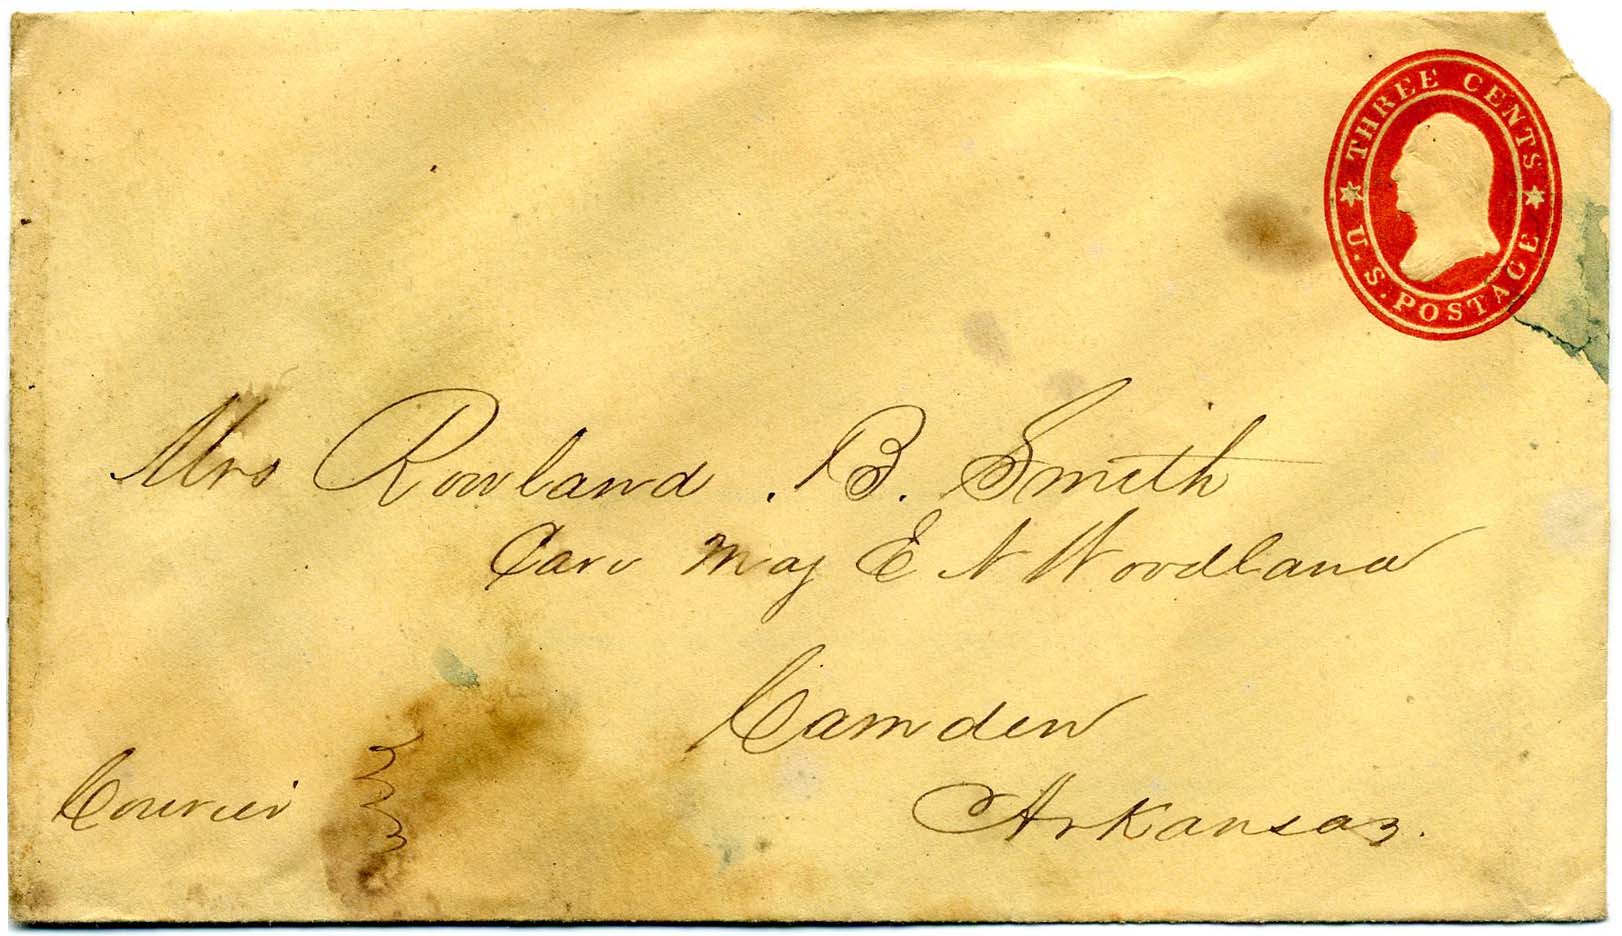 THREE CENTS
U.S. POSTAGE
Mrs Rowland . B. Smith
Care Maj E N Woodland
Camden
Arkansas.
Courier